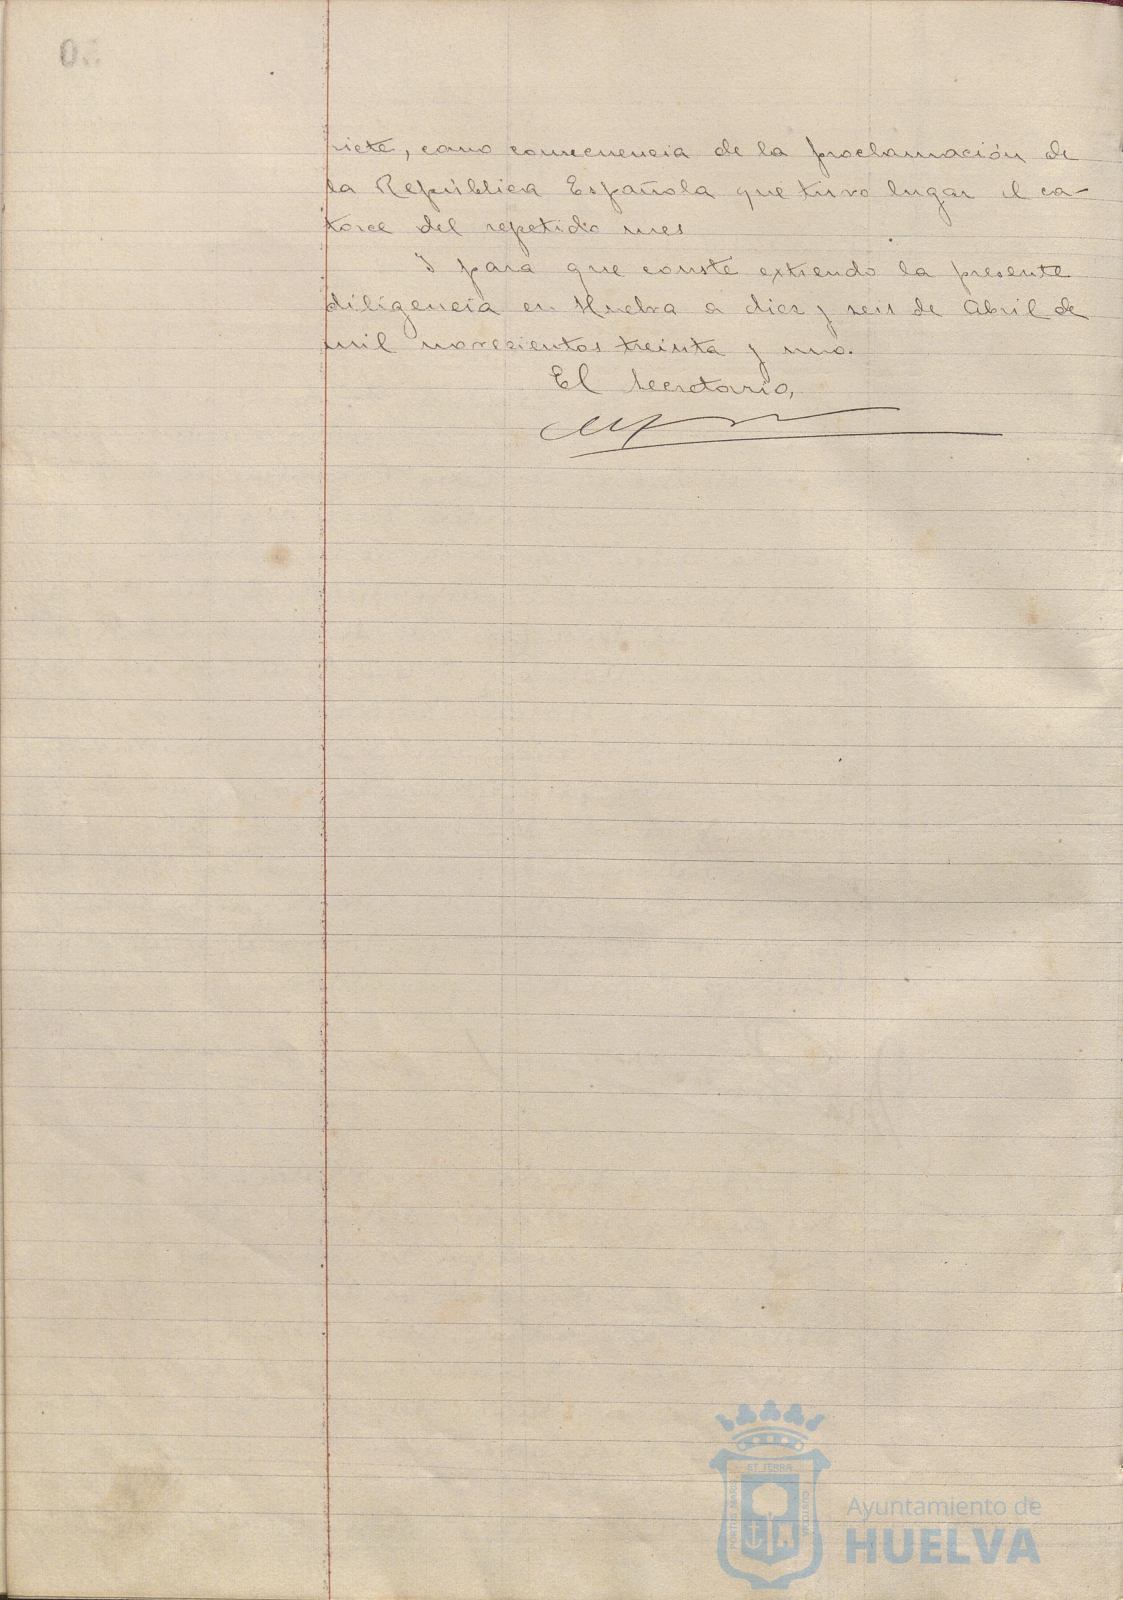 siete, como consecuencia de la proclamación de
la República Española que tuvo lugar el ca-
torce del repetido mes
Y para que conste extiendo la presente
diligencia en Huelva a diez y seis de Abril de
mil novecientos treinta y uno.
El Secretario,
ET TERRA
PORTUS MARIS
CUSTODIA
Ayuntamiento de
HUELVA